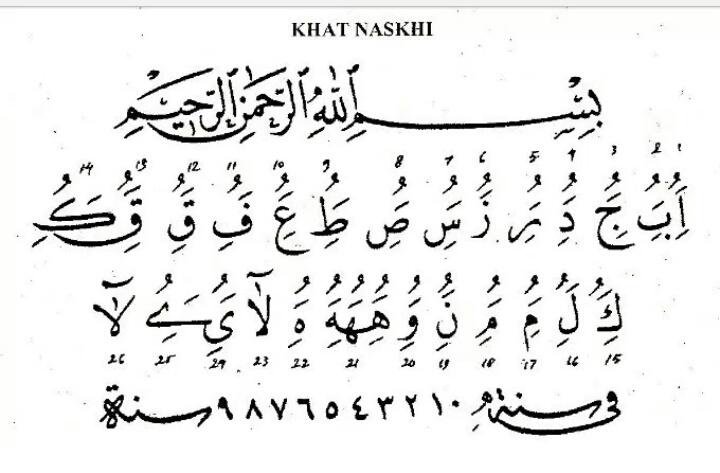 KHAT NASKHI
بِسْمِ اللهِ الرَّحْمٰنِ الرَّحِيْمِ
1 2 3 4 5 6 7 8 9 10 11 12 13 14
أ ب ج د ر ز س ص ط ع ف ق ق ك
ك ل م م ن و ههه ه لا ي ے لا
15 16 17 18 19 20 21 22 23 24 25 26
في سنة ٠ ١ ٢ ٣ ٤ ٥ ٦ ٧ ٨ ٩ سنة